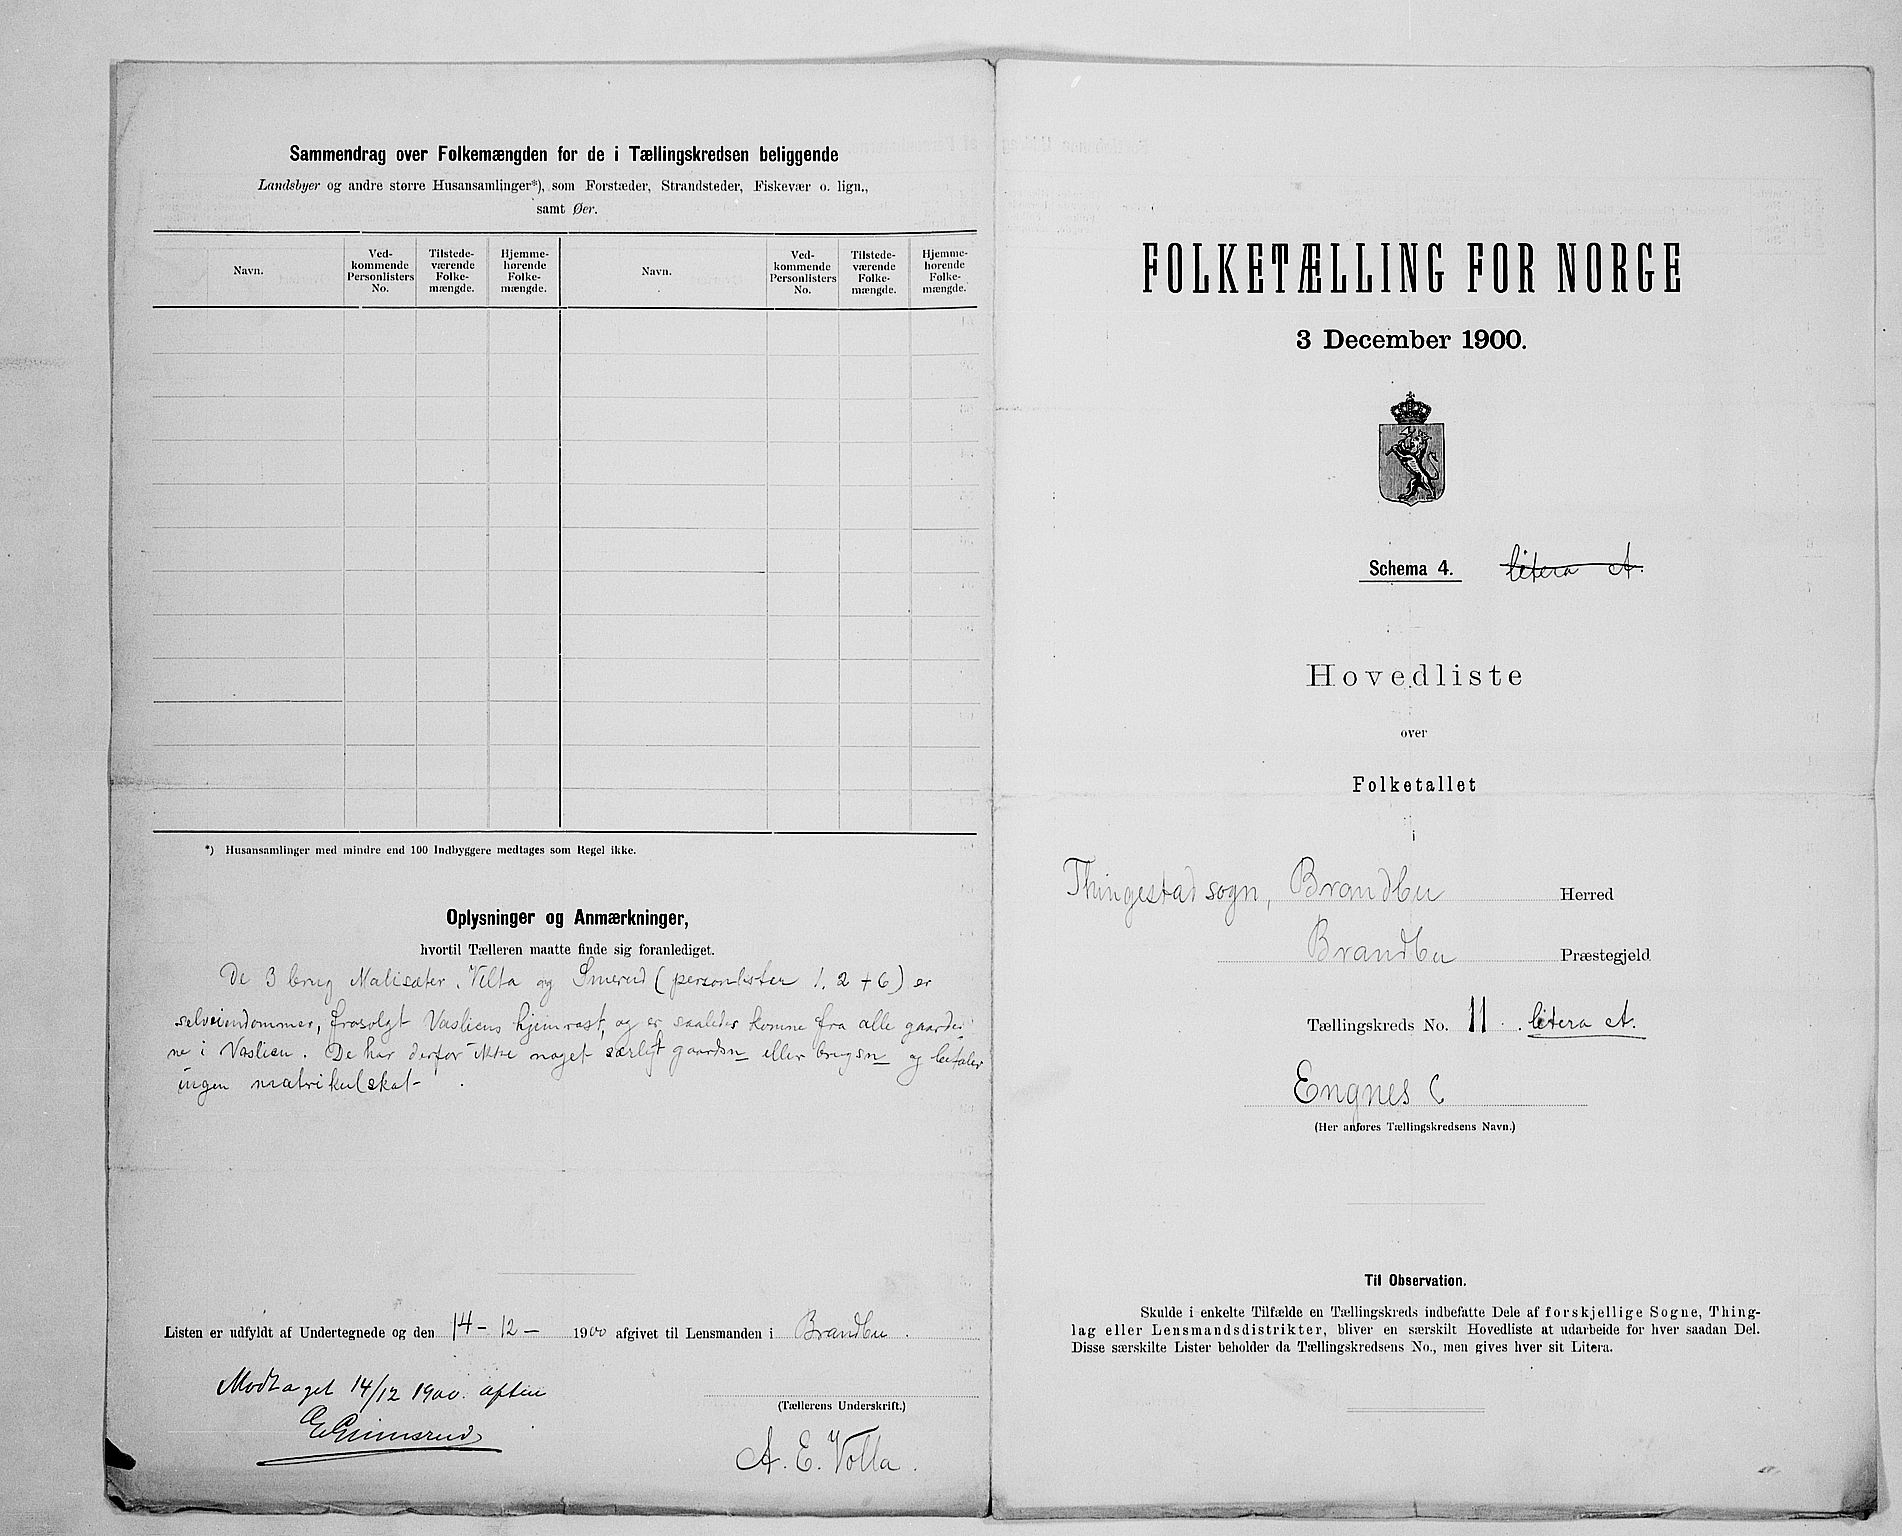 Sammendrag over Folkemængden for de i Tællingskredsen beliggende
Landsbyer og andre større Husansamlinger*), som Forstæder, Strandsteder, Fiskevær o. lign.,
samt Øer.
Navn.
Ved-
kommende
Personlisters
No.
Tilstede-
værende
Folke-
mængde.
Hjemme-
hørende
Folke-
mængde.
Navn.
Ved-
kommende
Personlisters
No.
Tilstede-
værende
Folke-
mængde.
Hjemme-
hørende
Folke-
mængde.
*) Husansamlinger med mindre end 100 Indbyggere medtages som Regel ikke.
Oplysninger og Anmærkninger,
hvortil Tælleren maatte finde sig foranlediget.
De 3 brug Malisæter, Velta og Smerud (personlister 1, 2 + 6) er
selveiendommer, frasolgt Vasliens hjemrast, og er saaledes komne fra alle gaarde
ne i Vaslien. De har derfor ikke noget særligt gaardsn eller brugsn og betaler
ingen matrikulskat.
Listen er udfyldt af Undertegnede og den 14-12- 1900 afgivet til Lensmanden i Brandbu.
Modtaget 14/12 1900. aften
E Grimsrud
(Tællerens Underskrift.)
A. E. Volla.
FOLKETÆLLING FOR NORGE
3 December 1900.
Schema 4. litera A.
Hovedliste
over
Folketallet
i
Thingestad sogn, Brandbu Herred
Brandbu Præstegjeld
Tællingskreds No. 11. litera A.
Engnes C
(Her anføres Tællingskredsens Navn.)
Til Observation.
Skulde i enkelte Tilfælde en Tællingskreds indbefatte Dele af forskjellige Sogne, Thing-
lag eller Lensmandsdistrikter, bliver en særskilt Hovedliste at udarbeide for hver saadan Del.
Disse særskilte Lister beholder da Tællingskredsens No., men gives hver sit Litera.